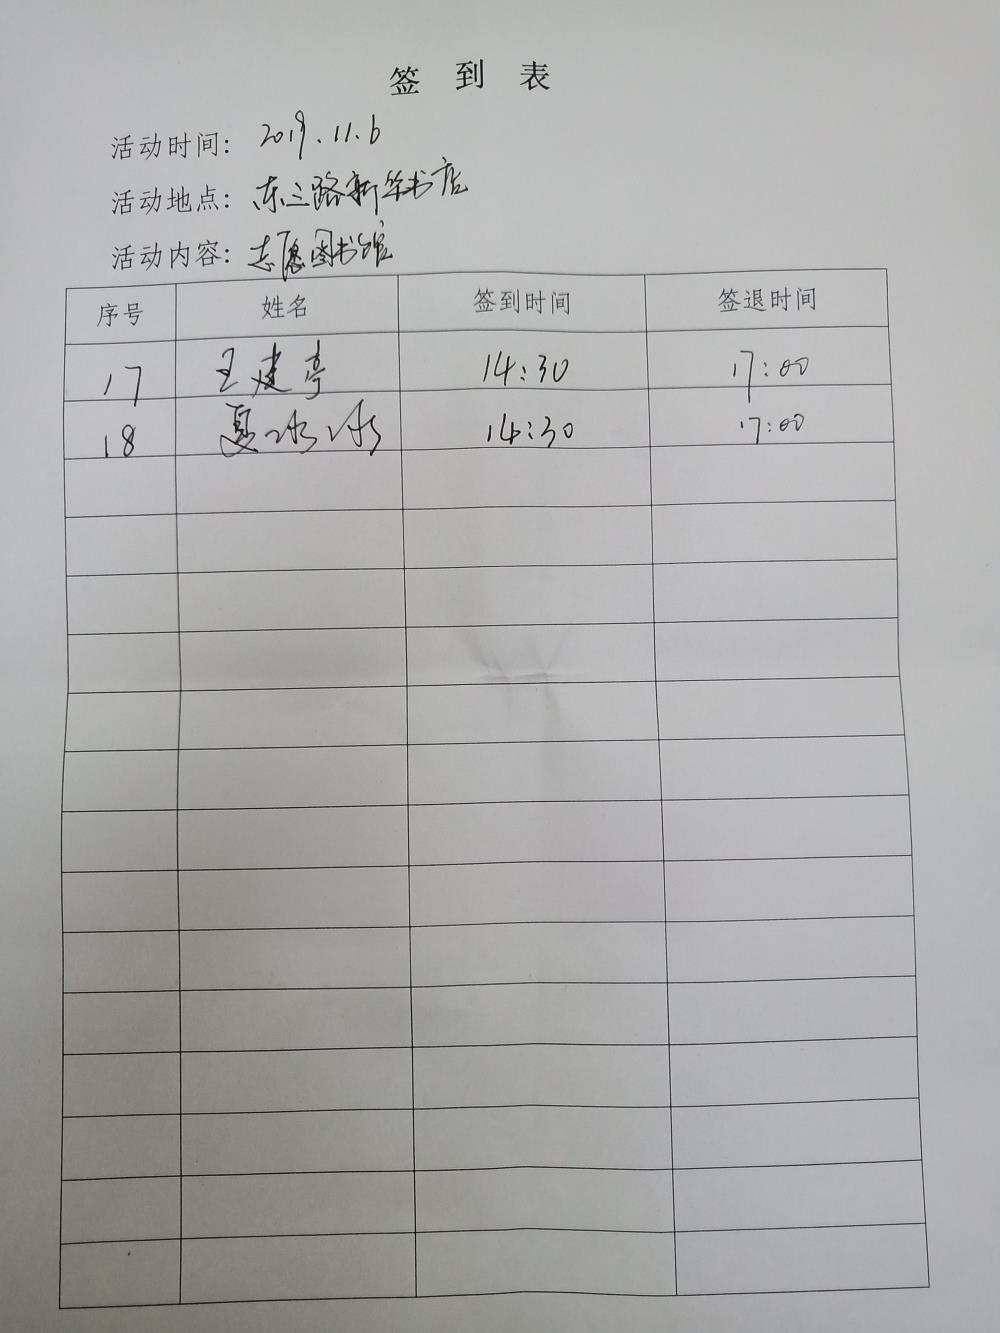 签到表
活动时间: 2019.11.6
活动地点: 东三路新华书店
活动内容: 志愿图书馆
序号 姓名 签到时间 签退时间
17 王建亭 14:30 17:00
18 夏冰冰 14:30 17:00